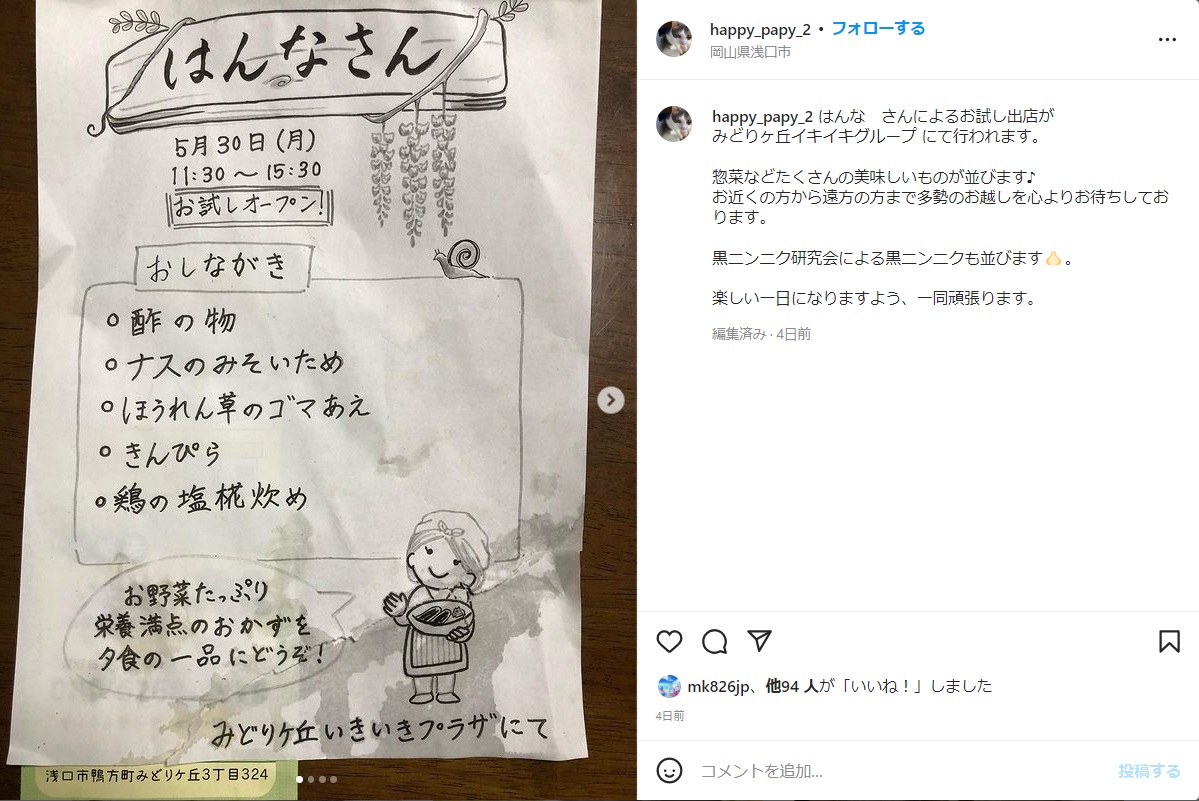 はんなさん
5月30日(月)
11:30〜15:30
お試しオープン!
おしながき
○酢の物
○ナスのみそいため
○ほうれん草のゴマあえ
○きんぴら
○鶏の塩糀炊め
お野菜たっぷり
栄養満点のおかずを
夕食の一品にどうぞ!
みどりヶ丘いきいきプラザにて
浅口市鴨方町みどりケ丘3丁目324
happy_papy_2 • フォローする
岡山県浅口市
happy_papy_2 はんな　さんによるお試し出店が
みどりヶ丘イキイキグループ にて行われます。
惣菜などたくさんの美味しいものが並びます♪
お近くの方から遠方の方まで多勢のお越しを心よりお待ちしてお
ります。
黒ニンニク研究会による黒ニンニクも並びます🧄。
楽しい一日になりますよう、一同頑張ります。
編集済み · 4日前
mk826jp、他94 人が「いいね！」しました
4日前
コメントを追加...
投稿する